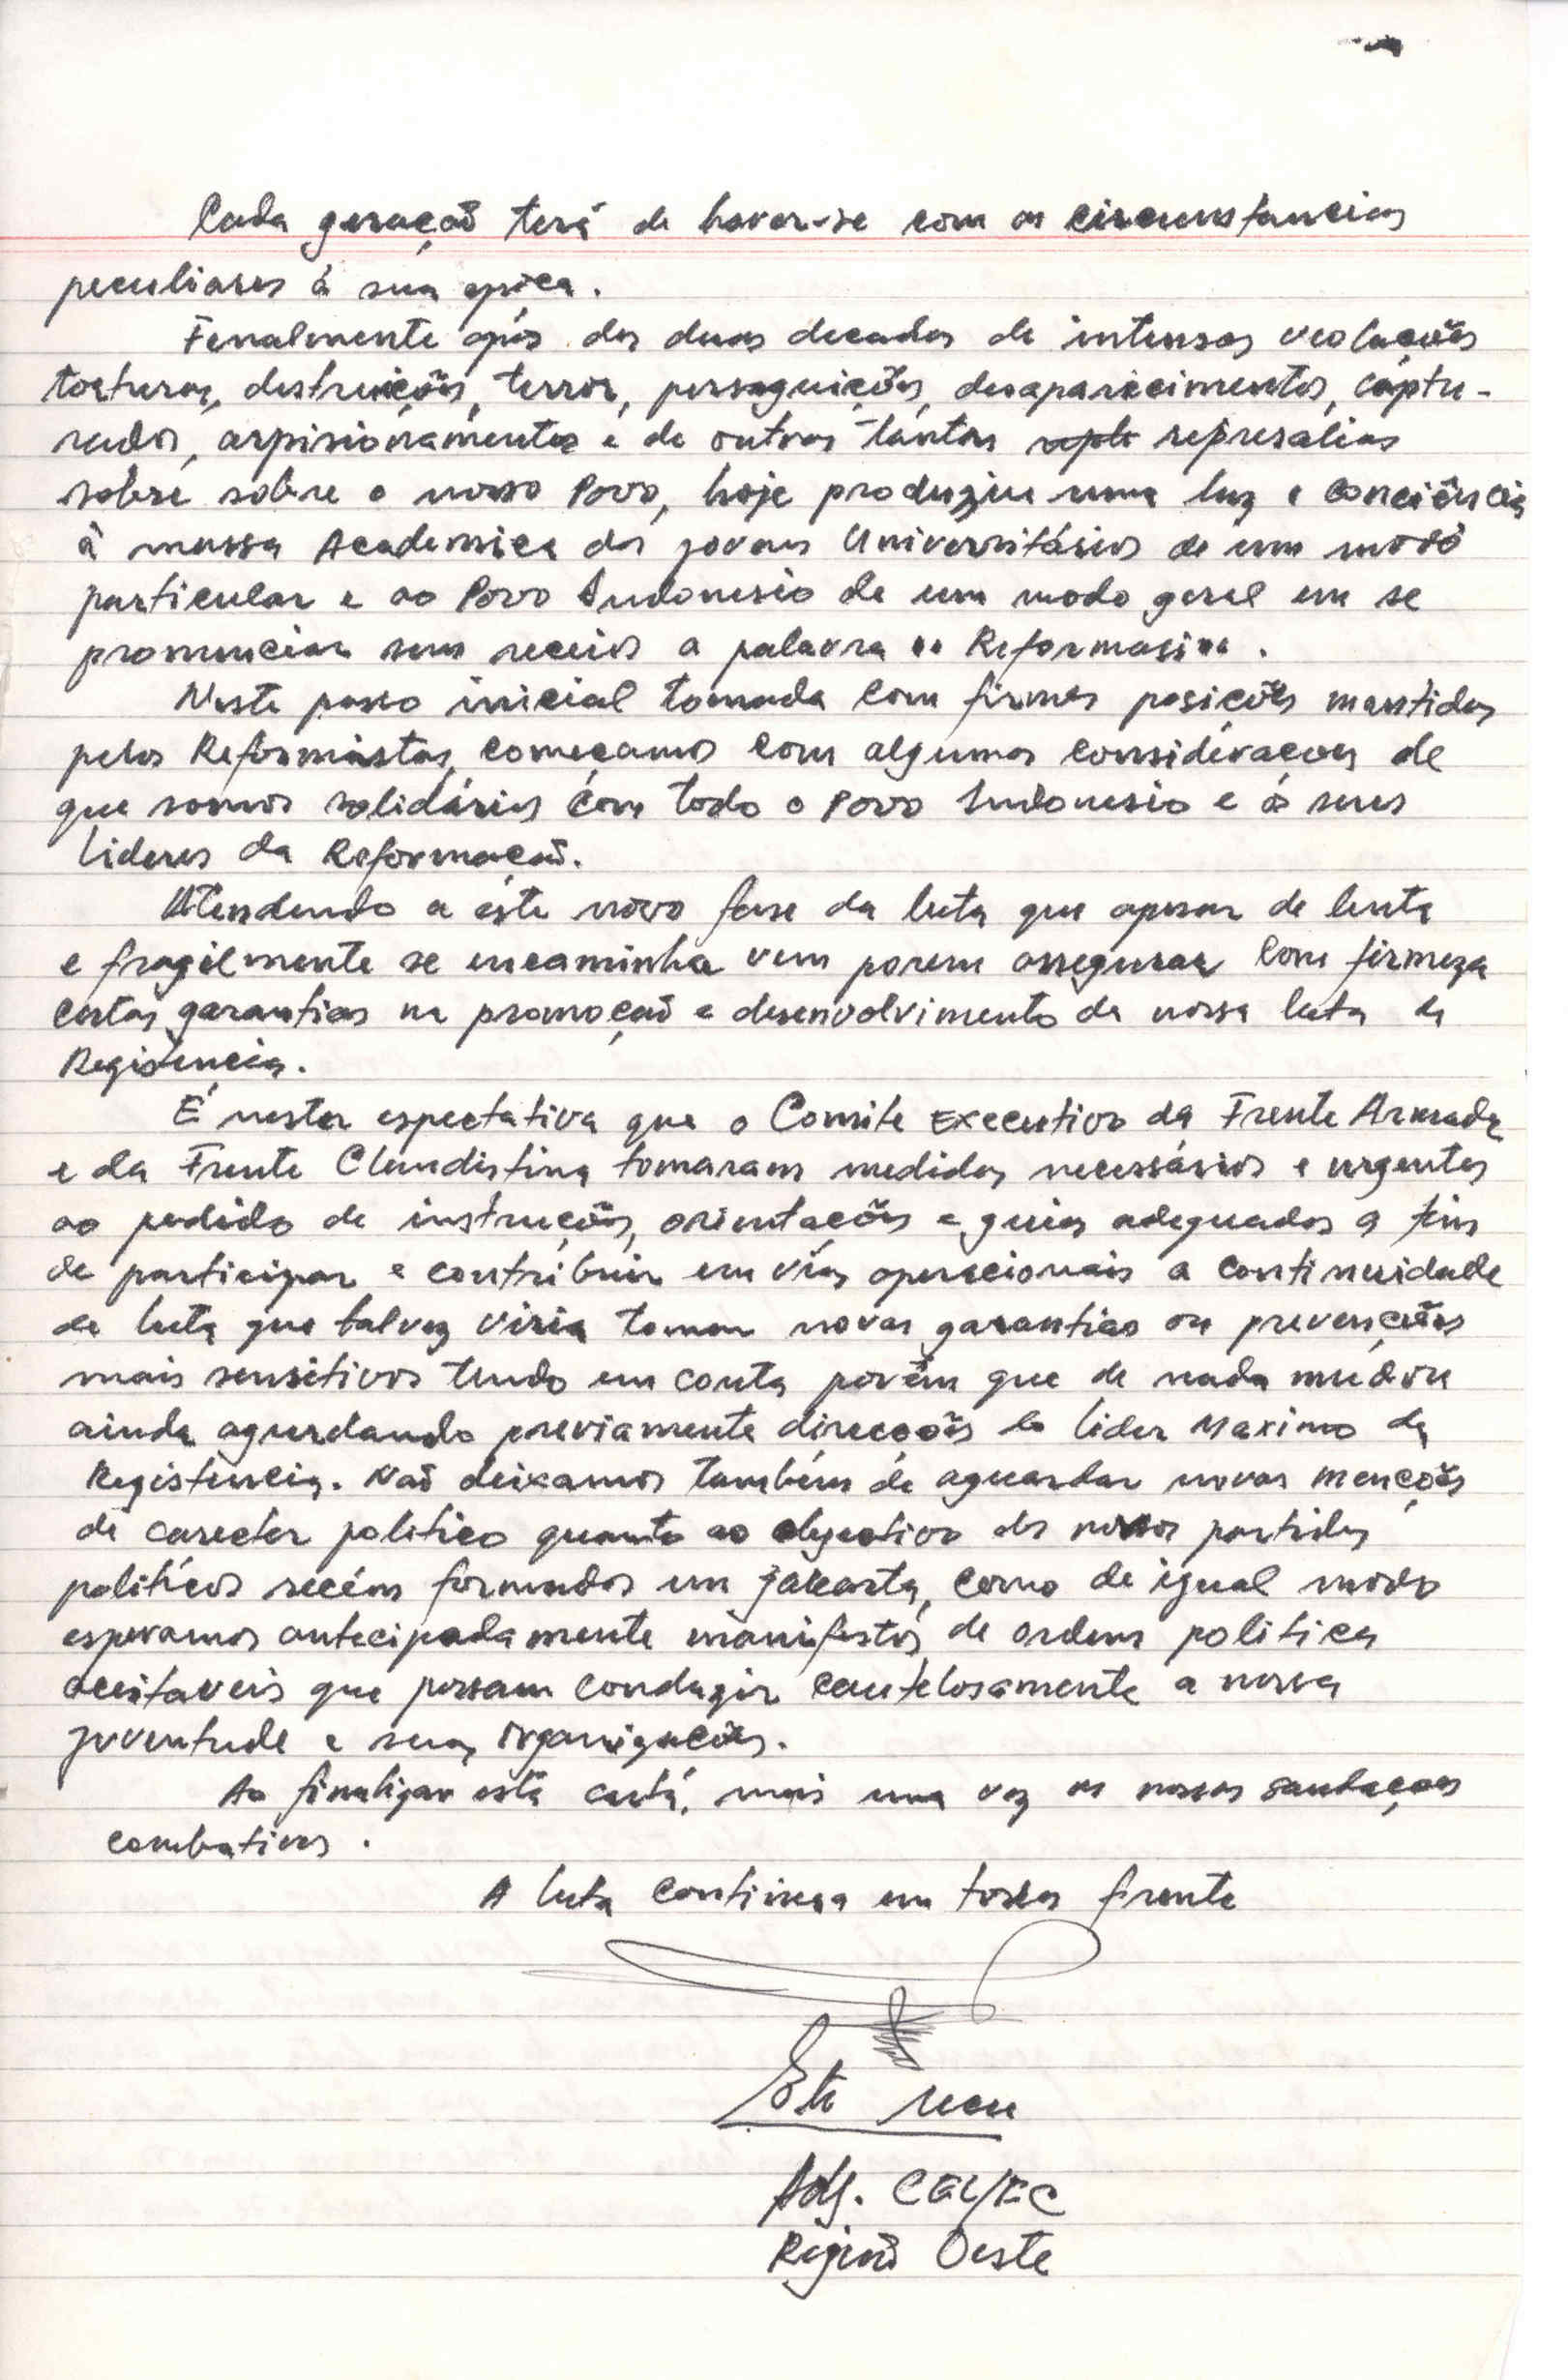 Cada geração terá de haver-se com as circunstancias
peculiares à sua epoca.
Fenalmente após dos duas decadas de intensas veolações
torturas, destruições, terror, perseguições, desaparecimentos, captu-
rados, arpisionamentos e de outras tantas represalias
sobre sobre o nosso Povo, hoje produziu uma luz e conciência
à massa Academica dos jovens Universitários de um modo
particular e ao Povo Indonesio de um modo geral em se
pronunciar sem receios a palavra "Reformasi".
Neste passo inicial tomada com firmes posições mantidas
pelos Reformistas, começamos com algumas considerações de
que somos solidários com todo o Povo Indonesio e à seus
lideres da Reformação.
Atendendo a éste novo fase da luta que apesar de lenta
e fragilmente se encaminha vem porem assegurar com firmeza
certas garantias na promoção e desenvolvimento da nossa luta de
Registencia.
É nesta espectativa que o Comite Executivo da Frente Armada
e da Frente Clandistina tomaram medidas necessários e urgentes
ao pedido de instruções, orientações e guias adequados a fim
de participar e contribuir em vias operacionais a continuidade
da luta que talvez viria tomar novas garantias ou prevenções
mais sensitivos tendo em conta porém que de nada mudou
ainda aguardando previamente direcções do lider Maximo da
Registencia. Naõ deixamos também de aguardar novas menções
de carecter politico quanto ao objectivo dos novos partidos
politicos recém formados em Jakarta, como de igual modo
esperamos antecipadamente manifestos de ordem politica
aceitaveis que possam conduzir cautelosamente a nossa
juventude e suas organizações.
Ao finalizar esta carta, mais uma vez as nossas saudaçoes
combativas.
A luta continua em todas frente
Adj. CEL/FC
Região Oeste